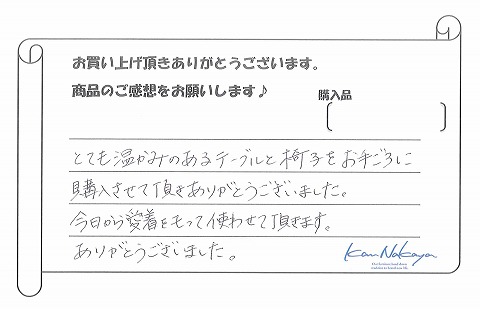 お買い上げ頂きありがとうございます。
商品のご感想をお願いします♪
購入品
とても温かみのあるテーブルと椅子をお手ごろに
購入させて頂きありがとうございました。
今日から愛着をもって使わせて頂きます。
ありがとうございました。
Kan Nakaya